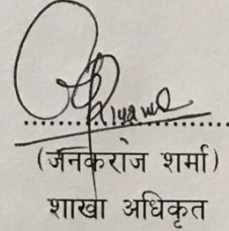 (जनकराज शर्मा)
शाखा अधिकृत